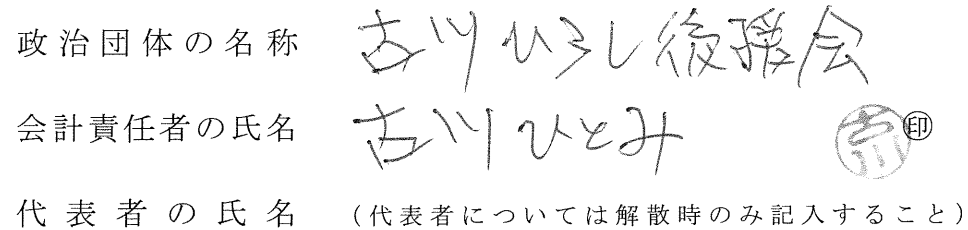 政治団体の名称 古川ひろし後援会
会計責任者の氏名 古川ひとみ 古川 ㊞
代表者の氏名 （代表者については解散時のみ記入すること）